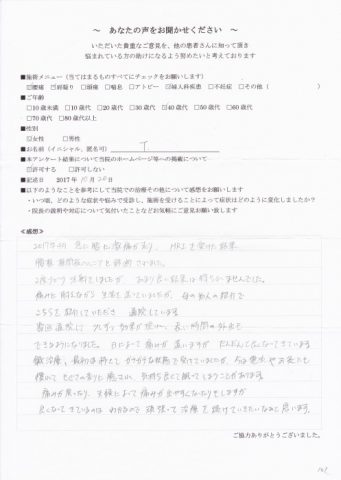 ～ あなたの声をお聞かせください ～
いただいた貴重なご意見を、他の患者さんに知って頂き
悩まれている方の助けになるよう努めたいと考えております
■施術メニュー（当てはまるものすべてにチェックをお願いします）
☑腰痛 ☑肩凝り □頭痛 □喘息 □アトピー ☑婦人科疾患 □不妊症 □その他（ ）
■ご年齢
□10歳未満 □10代 □20代 □30代 ☑40歳代 □50歳代 □60代
□70代 □80歳代以上
■性別
☑女性 □男性
■お名前（イニシャル、匿名可） T
■本アンケート結果について当院のホームページ等への掲載について
☑許可する □許可しない
■記述日 2017年 10月20日
■以下のようなことを参考にして当院での治療その他について感想をお願いします
・いつ頃、どのような症状や悩みで受診し、施術を受けることによって症状はどのように変化しましたか？
・院長の説明や対応について気付いたことなどお気軽にご意見お願い致します
≪感想≫
2017年 急に 激痛が走り、MRIを受けた結果
腰椎 ヘルニアと診断されました。
あまり良い結果は得られませんでした。
痛みに耐えながら 生活を送っていましたが、 の紹介で
こちらを紹介していただき 通院しています。
毎回通院して 少しずつ 効果が現れ、長い時間の外出も
できるようになりました。日によって痛みが違いますが だんだんと良くなってきています。
鍼治療も 最初は 緊張で受けていましたが、今は
もぐさの香りに癒され 気持ち良くて眠ってしまうことがあります。
痛みが戻ったり、天候によって痛みが出やすくなったりもしますが
良くなってきているのは わかるので 頑張って 治療を続けていきたいなあと思います。
ご協力ありがとうございました。